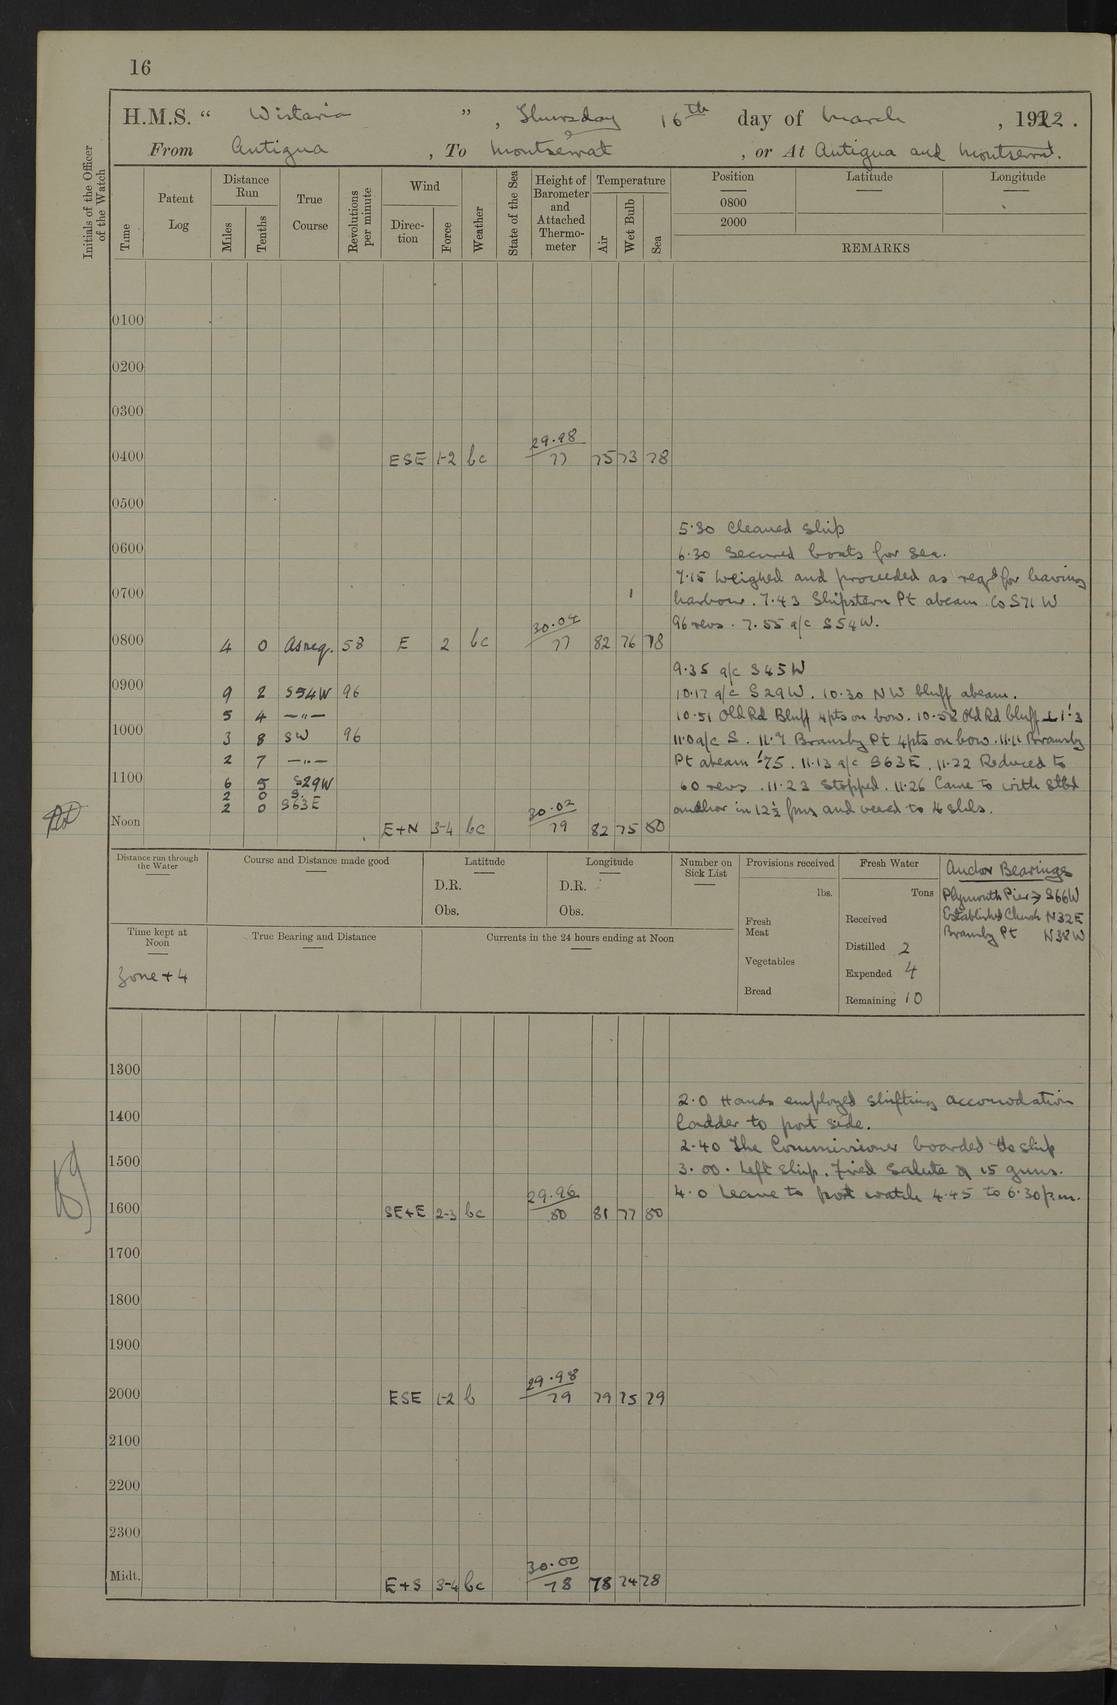 16
H.M.S. “ Wistaria ” , Thursday 16th day of March , 1922 .
From Antigua , To Montserrat , or At Antigua and Montserrat.
Initials of the Officer of the Watch
Time
Patent Log
Distance Run
Miles
Tenths
True Course
Revolutions per minute
Wind
Direc- tion
Force
Weather
State of the Sea
Height of Barometer and Attached Thermo- meter
Temperature
Air
Wet Bulb
Sea
Position
Latitude
Longitude
0800
2000
REMARKS
0100
0200
0300
29.98
0400 ESE 1-2 bc 77 75 73 78
0500
5.30 Cleaned Ship
0600
6.30 Secured boats for Sea.
7.15 Weighed and proceeded as reqd for leaving
0700
harbour. 7.43 Shipstern Pt abeam Co S71W
30.04
96 revs. 7.55 a/c S54W.
0800 4 0 As req. 58 E 2 bc 77 82 76 78
9.35 a/c S45W
0900 9 2 S54W 96
10.17 a/c S29W. 10.30 NW bluff abeam.
5 4 —"—
10.51 Old Rd Bluff 4pts on bow. 10.58 Old Rd bluff ⊥ 1'.3
1000 3 8 SW 96
11.0 a/c S. 11.7 Bransby Pt 4pts on bow. 11.11 Bransby
2 7 —"—
Pt abeam '.75. 11.13 a/c S63E. 11.22 Reduced to
1100 6 5 S29W
60 revs. 11.23 Stopped. 11.26 Came to with Stbd
2 0 S.
2 0 S63E
anchor in 12½ fms and veered to 4 shls.
30.02
Noon E+N 3-4 bc 79 82 75 80
Distance run through the Water
Course and Distance made good
Latitude
D.R.
Obs.
Longitude
D.R.
Obs.
Number on Sick List
Provisions received
lbs.
Fresh Meat
Vegetables
Bread
Fresh Water
Tons
Received
Distilled 2
Expended 4
Remaining 10
Anchor Bearings
Plymouth Pier → S66W
Established Church N32E
Bransby Pt N38W
Time kept at Noon
Zone + 4
True Bearing and Distance
Currents in the 24 hours ending at Noon
1300
2.0 Hands employed shifting accomodation
1400
ladder to port side.
2.40 The Commissioner boarded the ship
1500
3.00. Left ship. Fired Salute of 15 guns.
29.96
4.0 Leave to port watch 4.45 to 6.30 p.m.
1600 SE+E 2-3 bc 80 81 77 80
1700
1800
1900
29.98
2000 ESE 1-2 b 79 79 75 79
2100
2200
2300
30.00
Midt. E+S 3-4 bc 78 78 74 78